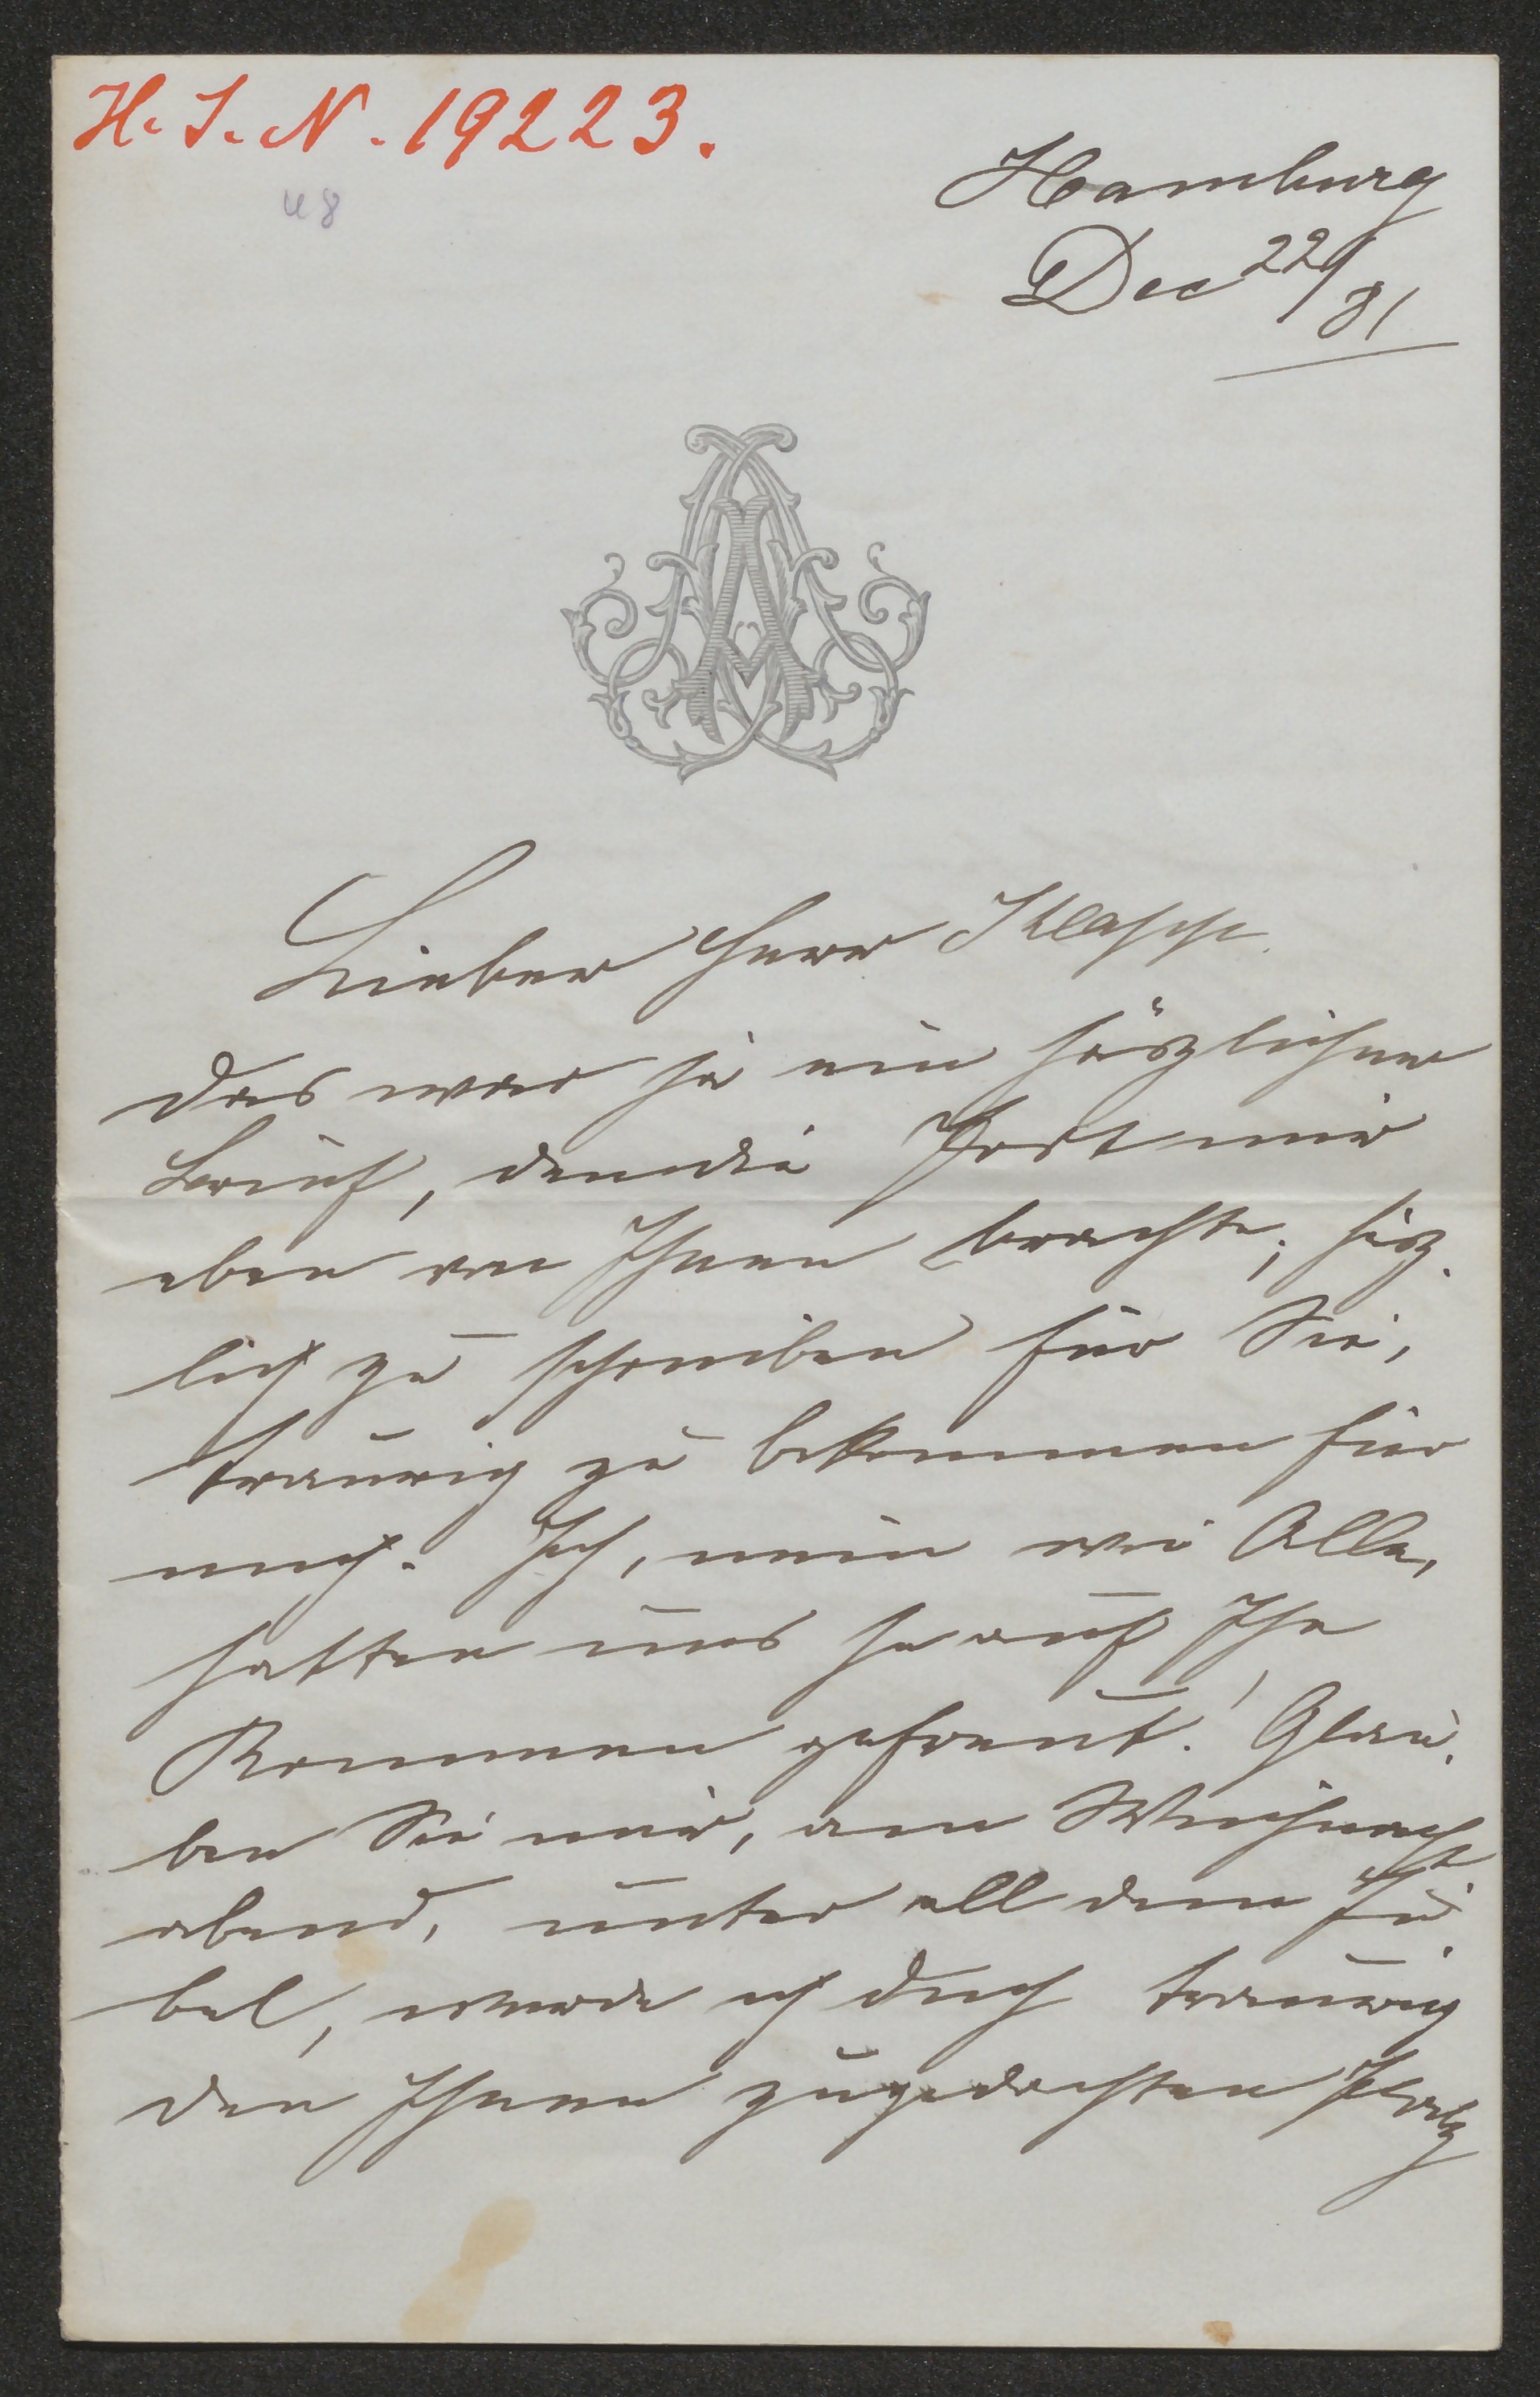 H. I. N. 19223.
48
Hamburg
Dec 22/81
Lieber Herr Klapp.
das war ja ein häszlicher
Brief, den die Post mir
eben von Ihnen brachte; häsz-
lich zu schreiben für Sie,
traurig zu bekommen für
mich. Ich, nein wir Alle,
hatten uns so auf Ihr
Kommen gefreut! Glau-
ben Sie mir, am Weihnacht
abend, unter all dem Ju-
bel, werde ich doch traurig
den Ihnen zugedachten Platz